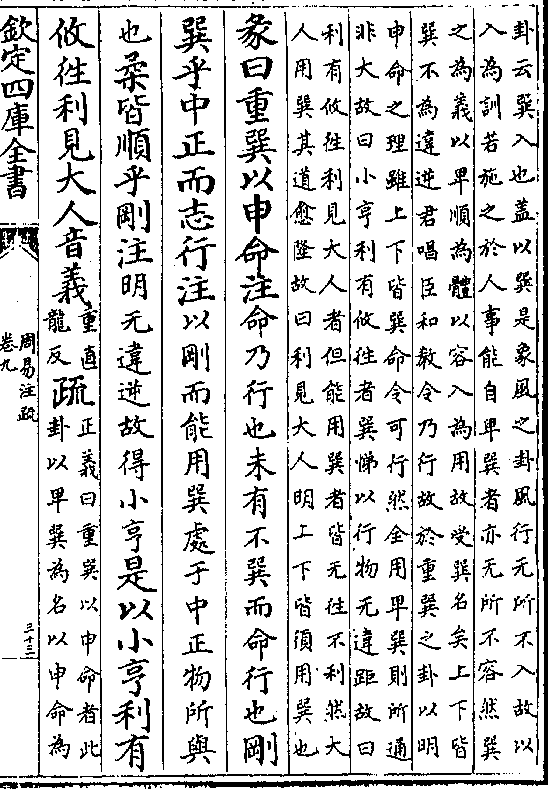 卦云巽入也盖以巽是象風之卦風行无所不入故以
入為訓若施之於人事能自卑巽者亦无所不容然巽
之為義以卑順為體以容入為用故受巽名矣上下皆
巽不為違逆君唱臣和教令乃行故於重巽之卦以明
申命之理雖上下皆巽命令可行然全用卑巽則所通
非大故曰小亨利有攸往者巽悌以行物无違距故曰
利有攸往利見大人者但能用巽者皆无往不利然大
人用巽其道愈隆故曰利見大人明上下皆須用巽也
彖曰重巽以申命注命乃行也未有不巽而命行也剛
巽乎中正而志行注以剛而能用巽處于中正物所與
也柔皆順乎剛注明无違逆故得小亨是以小亨利有
攸往利見大人音義重直
龍反疏正義曰重巽以申命者此
卦以卑巽為名以申命為
欽定四庫全書
周易注疏
卷九
三十三